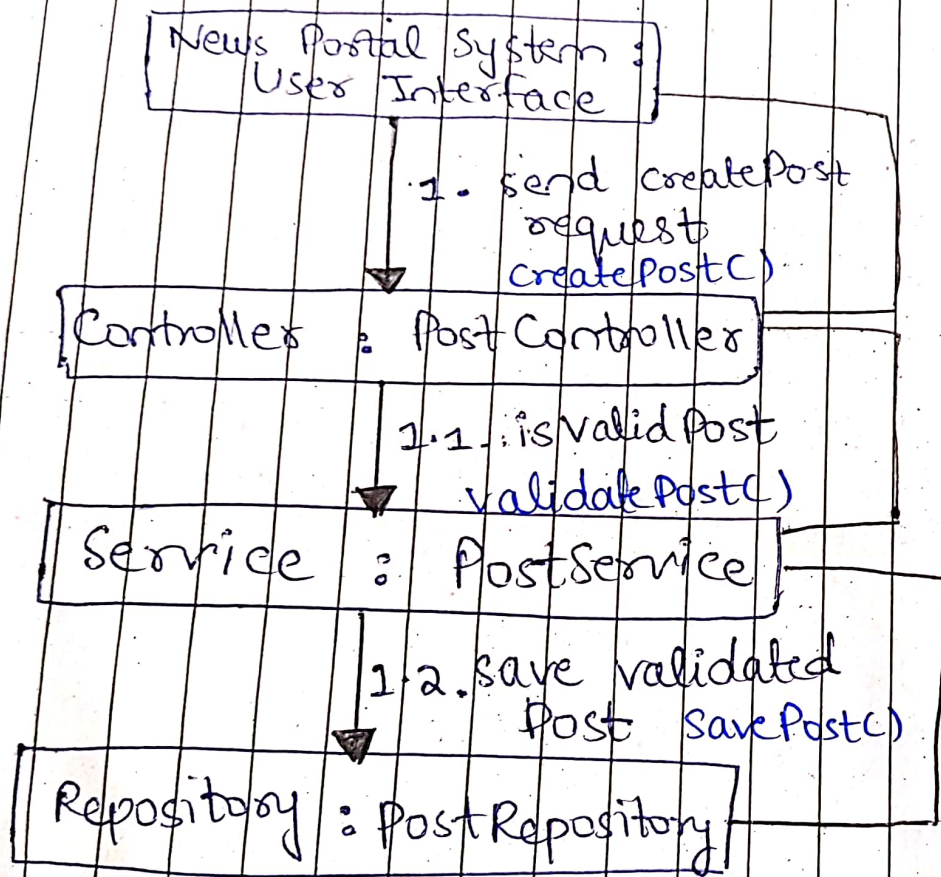 News Portal System :
User Interface
1. send createPost
request
createPost()
Controller : PostController
1.1. isValidPost
validatePost()
Service : PostService
1.2. save validated
Post savePost()
Repository : PostRepository